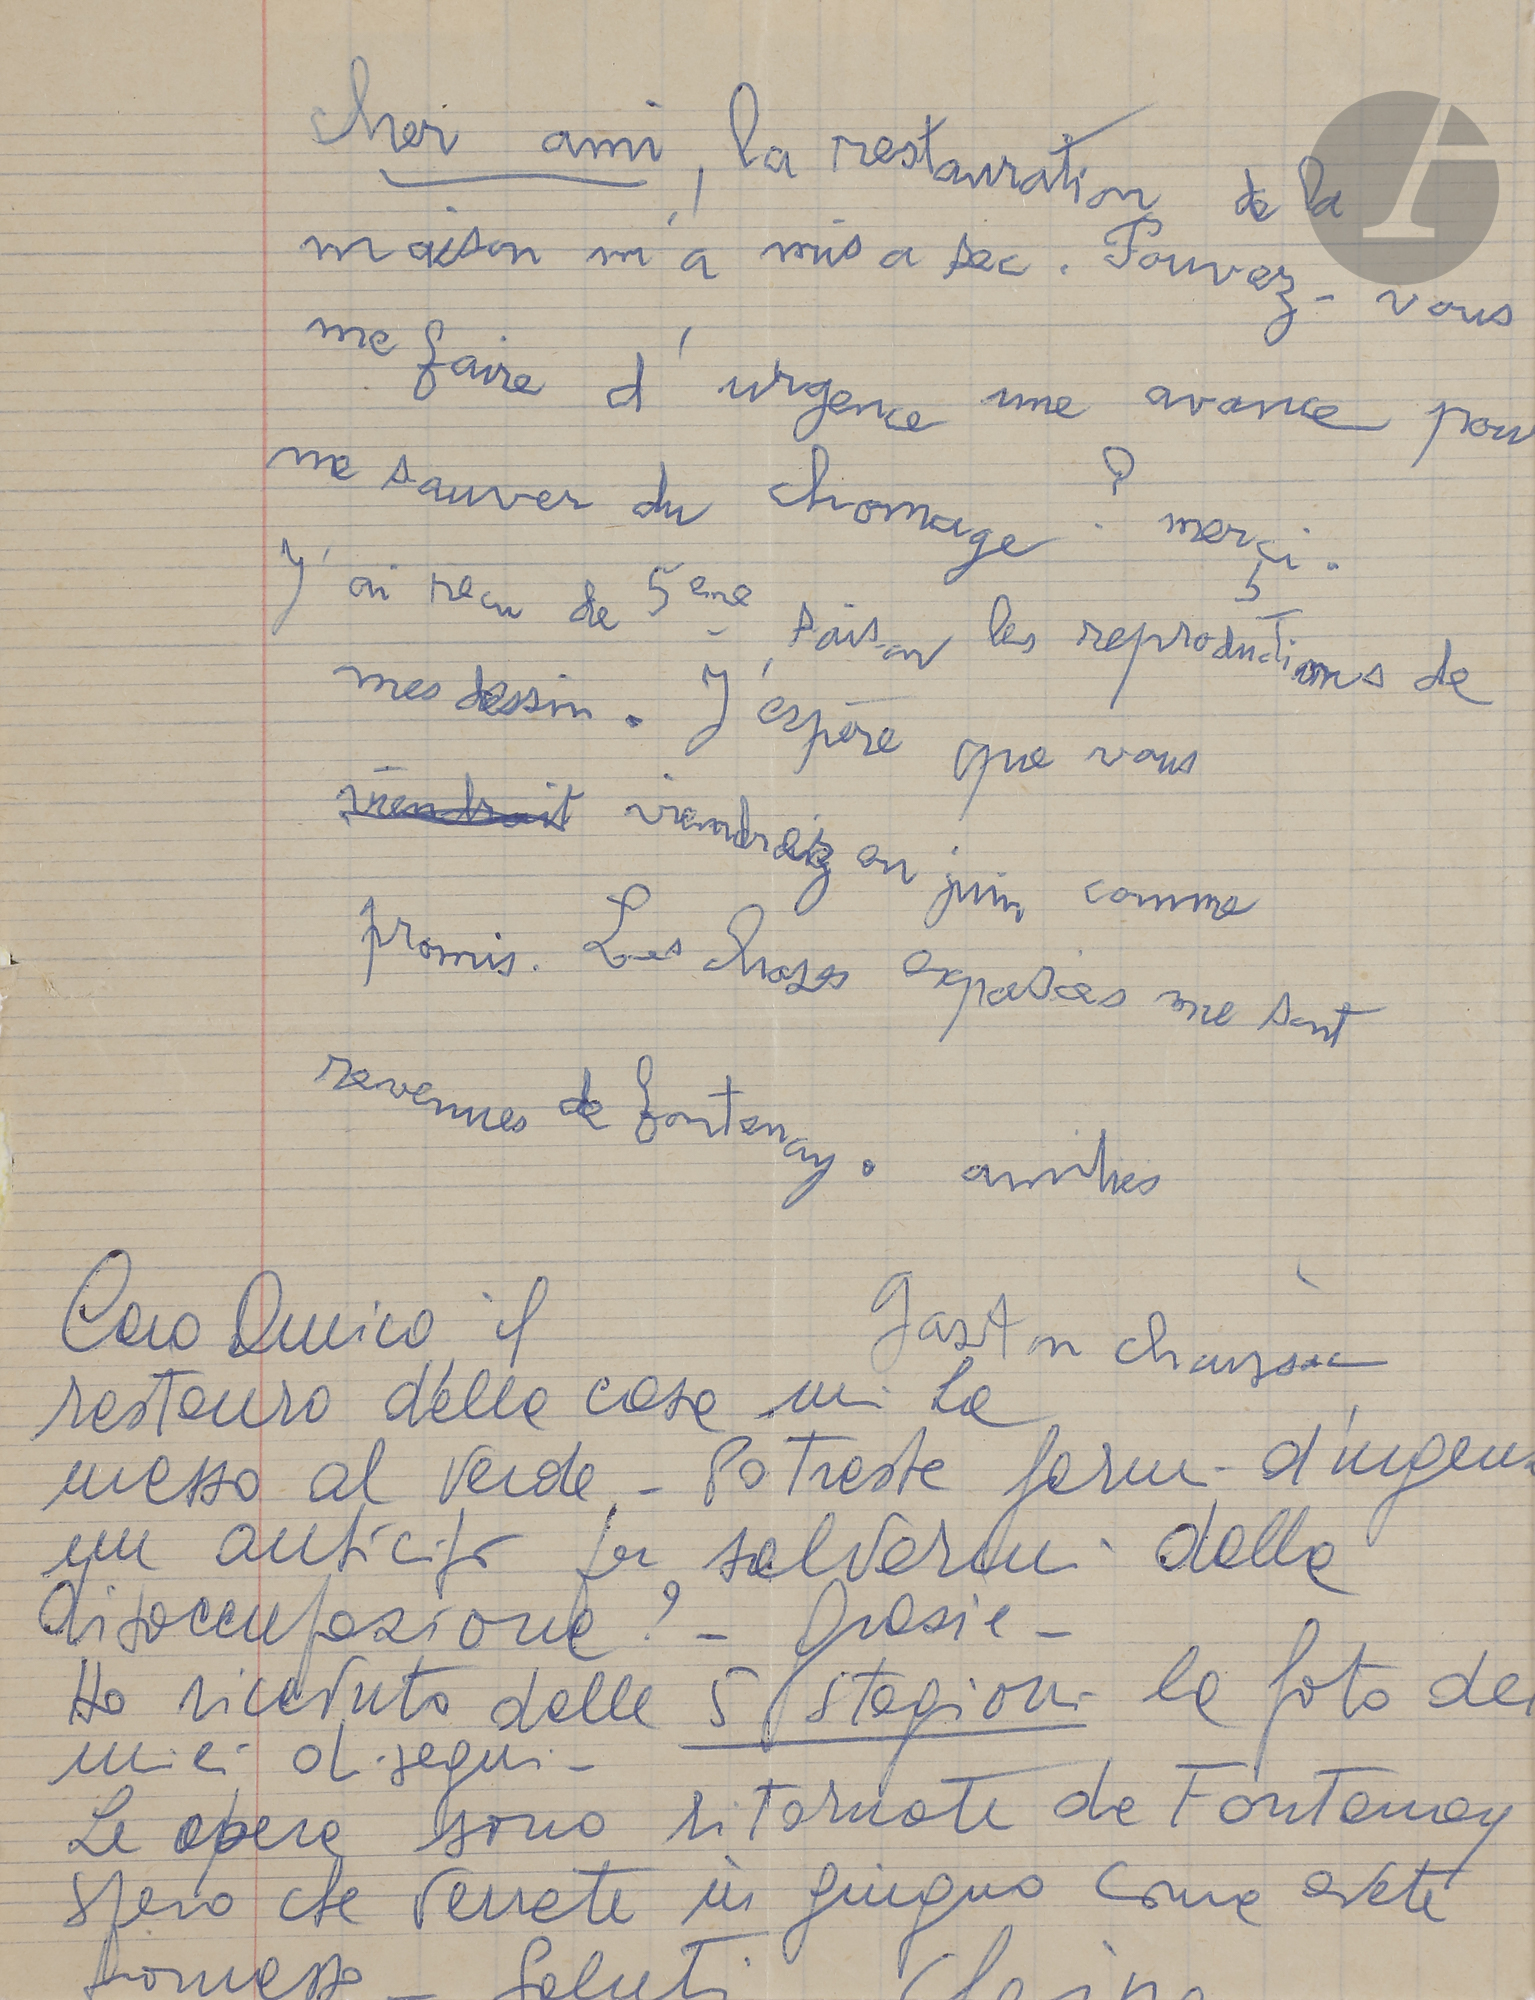 cher ami, la restauration de la
maison m'a mis a sec. Pouvez-vous
me faire d'urgence une avance pour
me sauver du chomage ? merci.
J'ai recu de 5eme saison les reproductions de
mes dessin. J'espère que vous
viendrait viendrez en juin comme
promis. Les choses exposées me sont
revenues de fontenay. amitiés
Gaston chaissac
Caro Amico il
restauro della casa mi ha
messo al verde - Potreste farmi d'urgenza
un anticipo per salvarmi dalla
disoccupazione? - Grazie -
Ho ricevuto dalle 5 stagioni le foto dei
miei disegni -
Le opere sono ritornate da Fontenay
spero che verrete in giugno come avete
promesso - Saluti